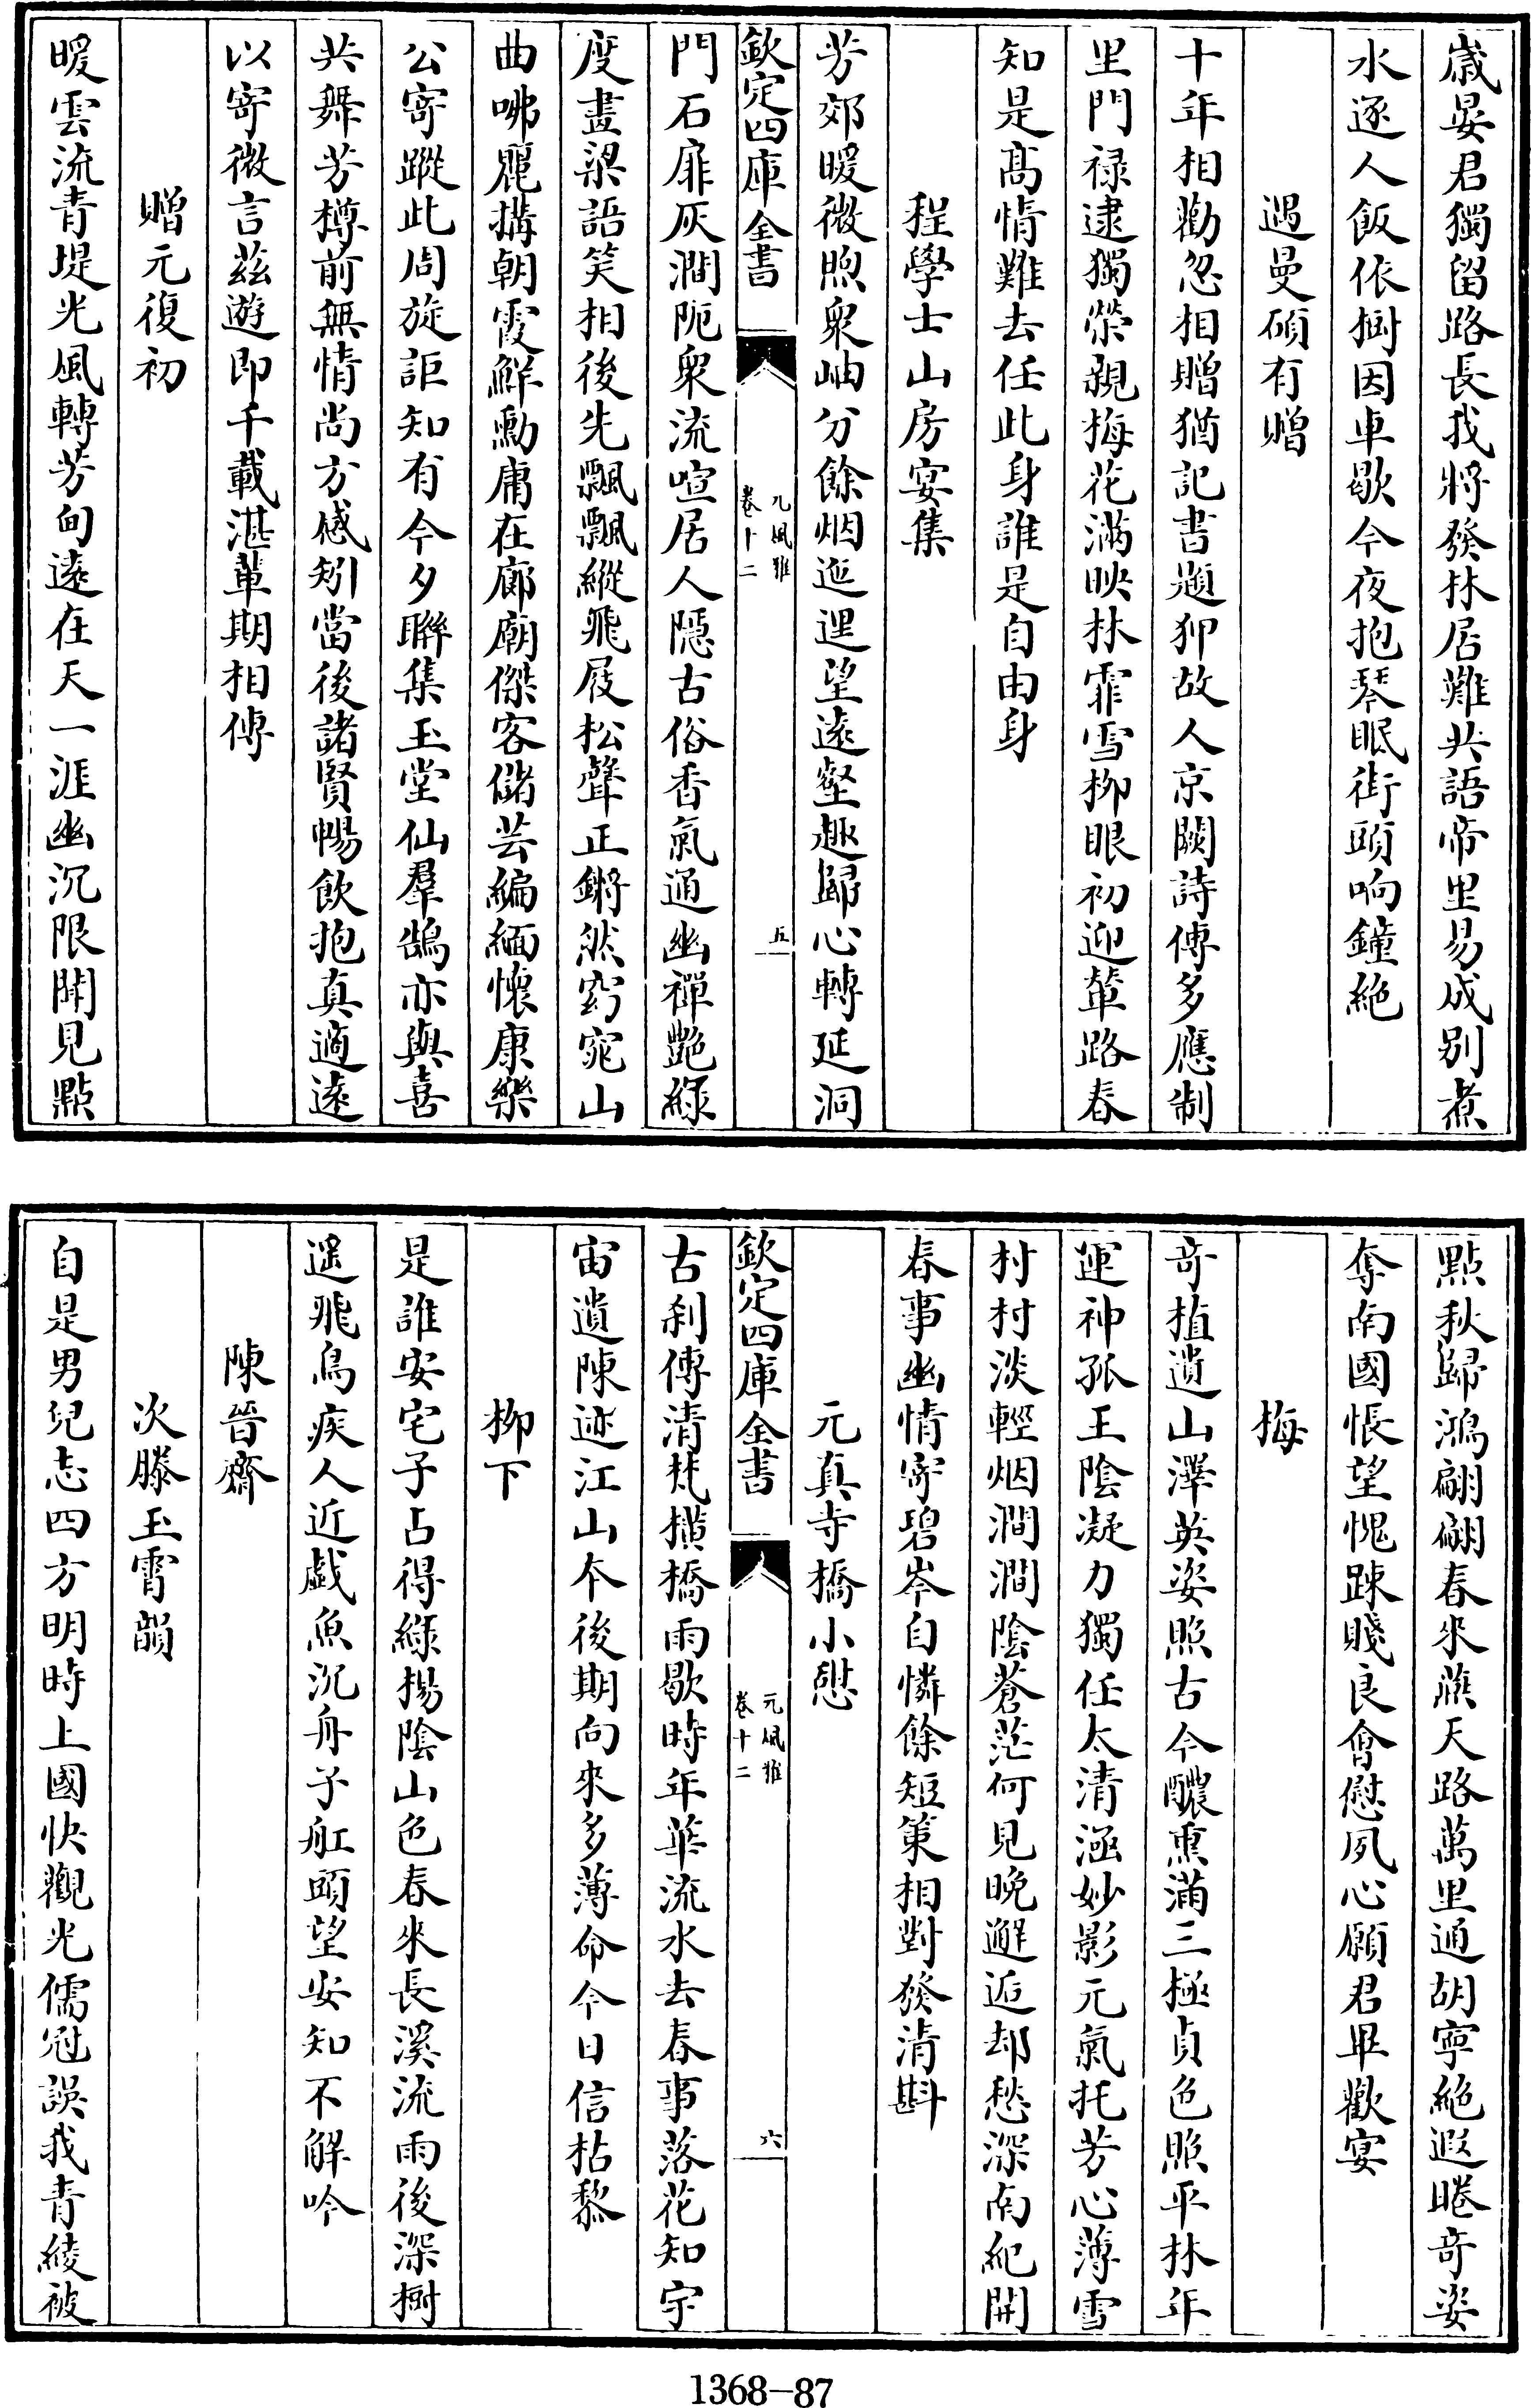 歳晏君獨留路長我將發林居難共語帝里易成别煮
水逐人飯依樹因車歇今夜抱琴眠街頭响鐘絶
遇曼碩有贈
十年相勸忽相贈猶記書題卯故人京闕詩傳多應制
里門禄逮獨榮親梅花滿映林霏雪柳眼初迎輦路春
知是髙情難去任此身誰是自由身
程學士山房宴集
芳郊暖微煦衆岫分餘烟迤逦望遠壑趣歸心轉延洞
欽定四庫全書
元風雅
卷十二
五
門石扉灰澗阨衆流喧居人隱古俗香氣通幽禪艶緑
度畫梁語笑相後先飄飄縱飛屐松聲正鏘然窈窕山
曲咈麗搆朝霞鮮勳庸在廊廟傑客儲芸編緬懷康樂
公寄蹤此周旋詎知有今夕聯集玉堂仙羣鵠亦與喜
共舞芳樽前無情尚方感矧當後諸賢暢飲抱真適遠
以寄微言茲遊即千載湛輩期相傳
贈元復初
暖雲流青堤光風轉芳甸遠在天一涯幽沉限聞見點
點秋歸鴻翩翩春來燕天路萬里通胡寧絶遐睠奇姿
奪南國悵望愧踈賤良會慰夙心願君畢歡宴
梅
奇植遺山澤英姿照古今醲熏滿三極貞色照平林年
運神孤王陰凝力獨任太清涵妙影元氣托芳心薄雪
村村淡輕烟澗澗陰蒼茫何見晚邂逅却愁深南紀開
春事幽情寄碧岑自憐餘短策相對發清斟
元真寺橋小憇
欽定四庫全書
元風雅
卷十二
六
古刹傳清梵横橋雨歇時年華流水去春事落花知宇
宙遺陳迹江山本後期向來多薄命今日信枯藜
柳下
是誰安宅子占得緑楊陰山色春來長溪流雨後深樹
遥飛鳥疾人近戯魚沉舟子舡頭望安知不解吟
陳晉齋
次滕玉霄韻
自是男兒志四方明時上國快觀光儒冠誤我青綾被
1368-87